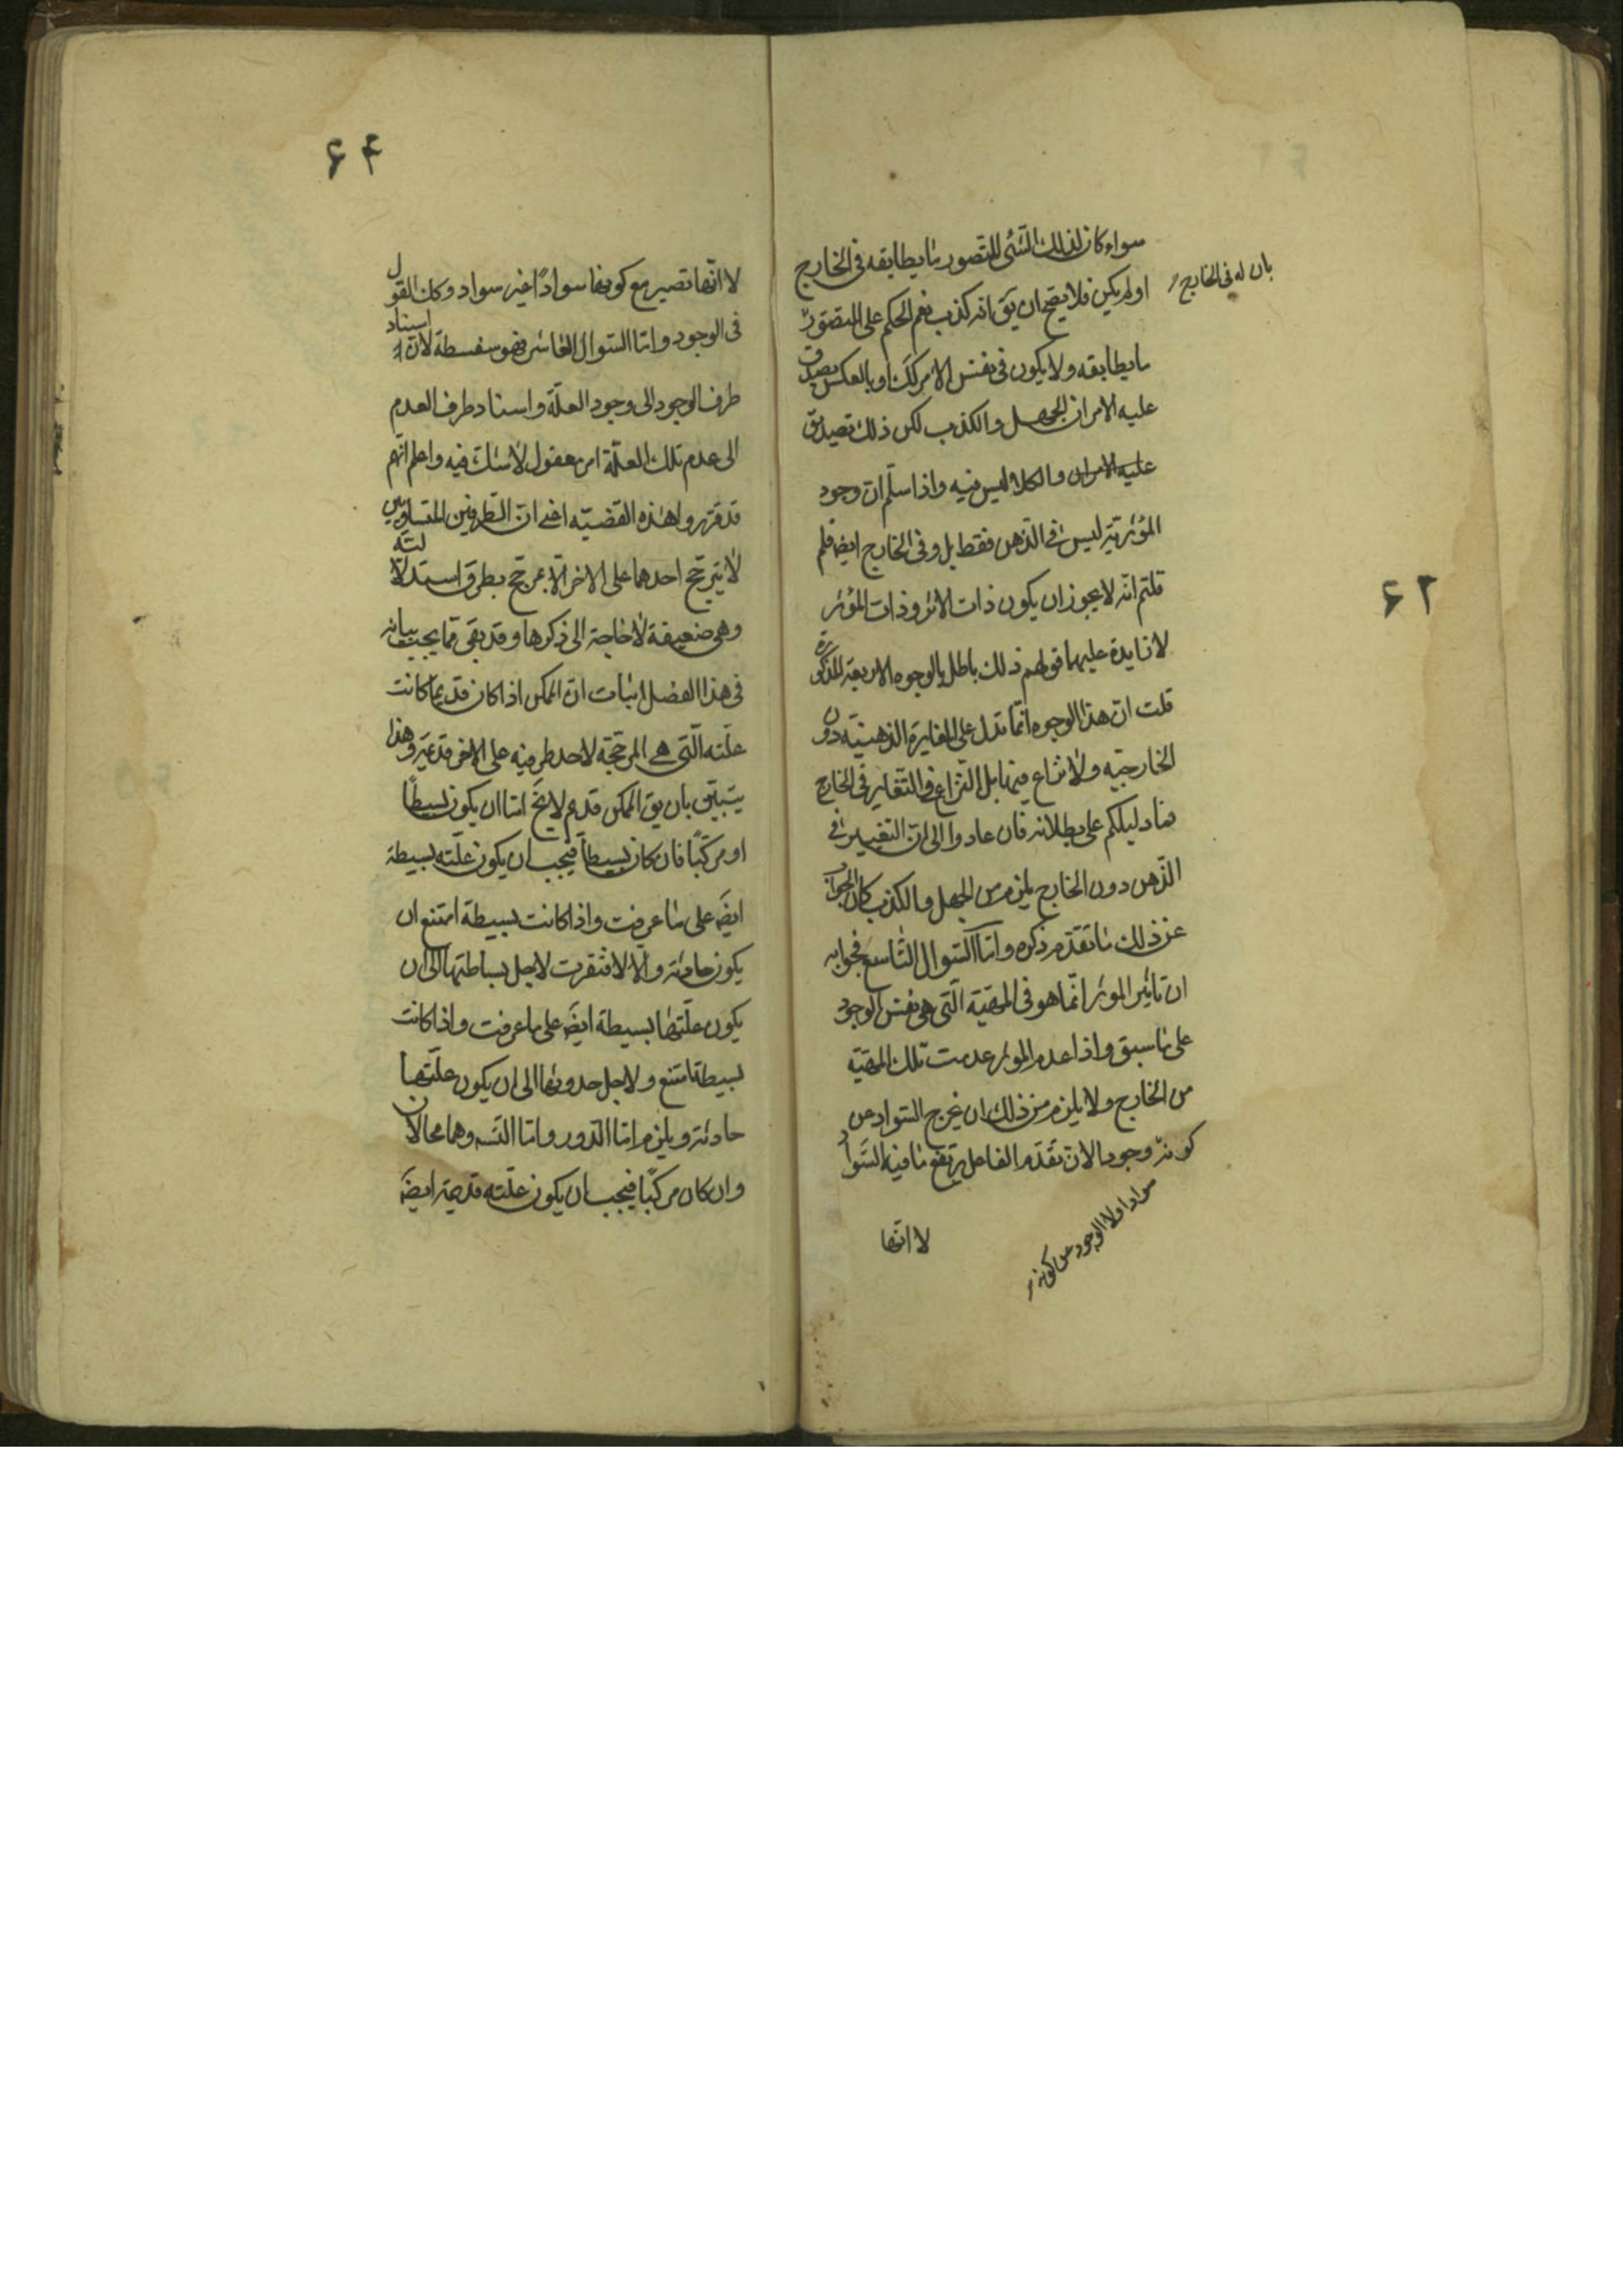 سواء كان لذلك الشئ المتصور ما يطابقه فى الخارج
بان له فى الخارج
او لم يكن فلا يصح ان يق انه كذب نعم الحكم على المتصور
ما يطابقه ولا يكون فى نفس الامر كك او بالعكس يصدق
عليه الامران الجهل والكذب لكن ذلك تصديق
عليه الامران والكلام ليس فيه واذا سلم ان وجود
المؤثرية ليس فى الذهن فقط بل وفى الخارج ايضا فلم
قلتم انه لا يجوز ان يكون ذات الاثر وذات المؤثر
لا زايدة عليهما قولهم ذلك باطل بالوجوه الاربعة المذكورة
قلت ان هذا الوجوه انما تدل على المغايرة الذهنيّه دون
الخارجيّه ولا نزاع فيها بل النزاع فى التغاير فى الخارج
فما دليلكم على بطلانه فان عادوا الى ان التغيير فى
الذهن دون الخارج يلزم من الجهل والكذب كان الجواب
عن ذلك ما تقدّم ذكره وامّا السّوال التّاسع فجوابه
ان تاثير الموثر انّما هو فى المهيّة الّتى هى نفس الوجود
على ما سبق واذا عدم الموثر عدمت تلك المهيّة
من الخارج ولا يلزم من ذلك ان يخرج السّواد عن
كونه وجودا لان تقدّم الفاعل يرتفع ما فيه السّواد
سوادا ولا الوجود عن كونه
لا انّها
۶۲
۶۴
لا انّها تصير مع كونها سوادًا غير سواد وكان القول
فى الوجود وامّا السّوال العاشر فهو سفسطة لان اسناد
طرف الوجود الى وجود العلّة واسناد طرف العدم
الى عدم تلك العلّة امر معقول لا شك فيه واعلم انّهم
قد قرروا هذه القضيّه اعنى انّ الطّرفين المتساويين
لا يترجّح احدهما على الاخر الّا بمرجّح بطرق استدلاليّه
وهى ضعيفة لا حاجة الى ذكرها وقد بقى مما يجب بيانه
فى هذا الفصل اثبات انّ الممكن اذا كان قديما كانت
علّته الّتى هى المرجّحة لاحد طرفيه على الاخر قديمة وهذا
يتبيّن بان يق الممكن قديم لا يخ امّا ان يكون بسيطًا
او مركّبًا فان كان بسيطًا فيجب ان يكون علّته بسيطة
ايضَ على ما عرفت واذا كانت بسيطة امتنع ان
يكون حادثة والّا لافتقرت لاجل بساطتها الى ان
يكون علّتها بسيطة ايضَ على ما عرفت واذا كانت
بسيطة امتنع ولاجل حدوثها الى ان يكون علّتها
حادثة ويلزم امّا الدّور وامّا التّسَ وهما محالان
وان كان مركّبًا فيجب ان يكون علّته قديمة ايضَ